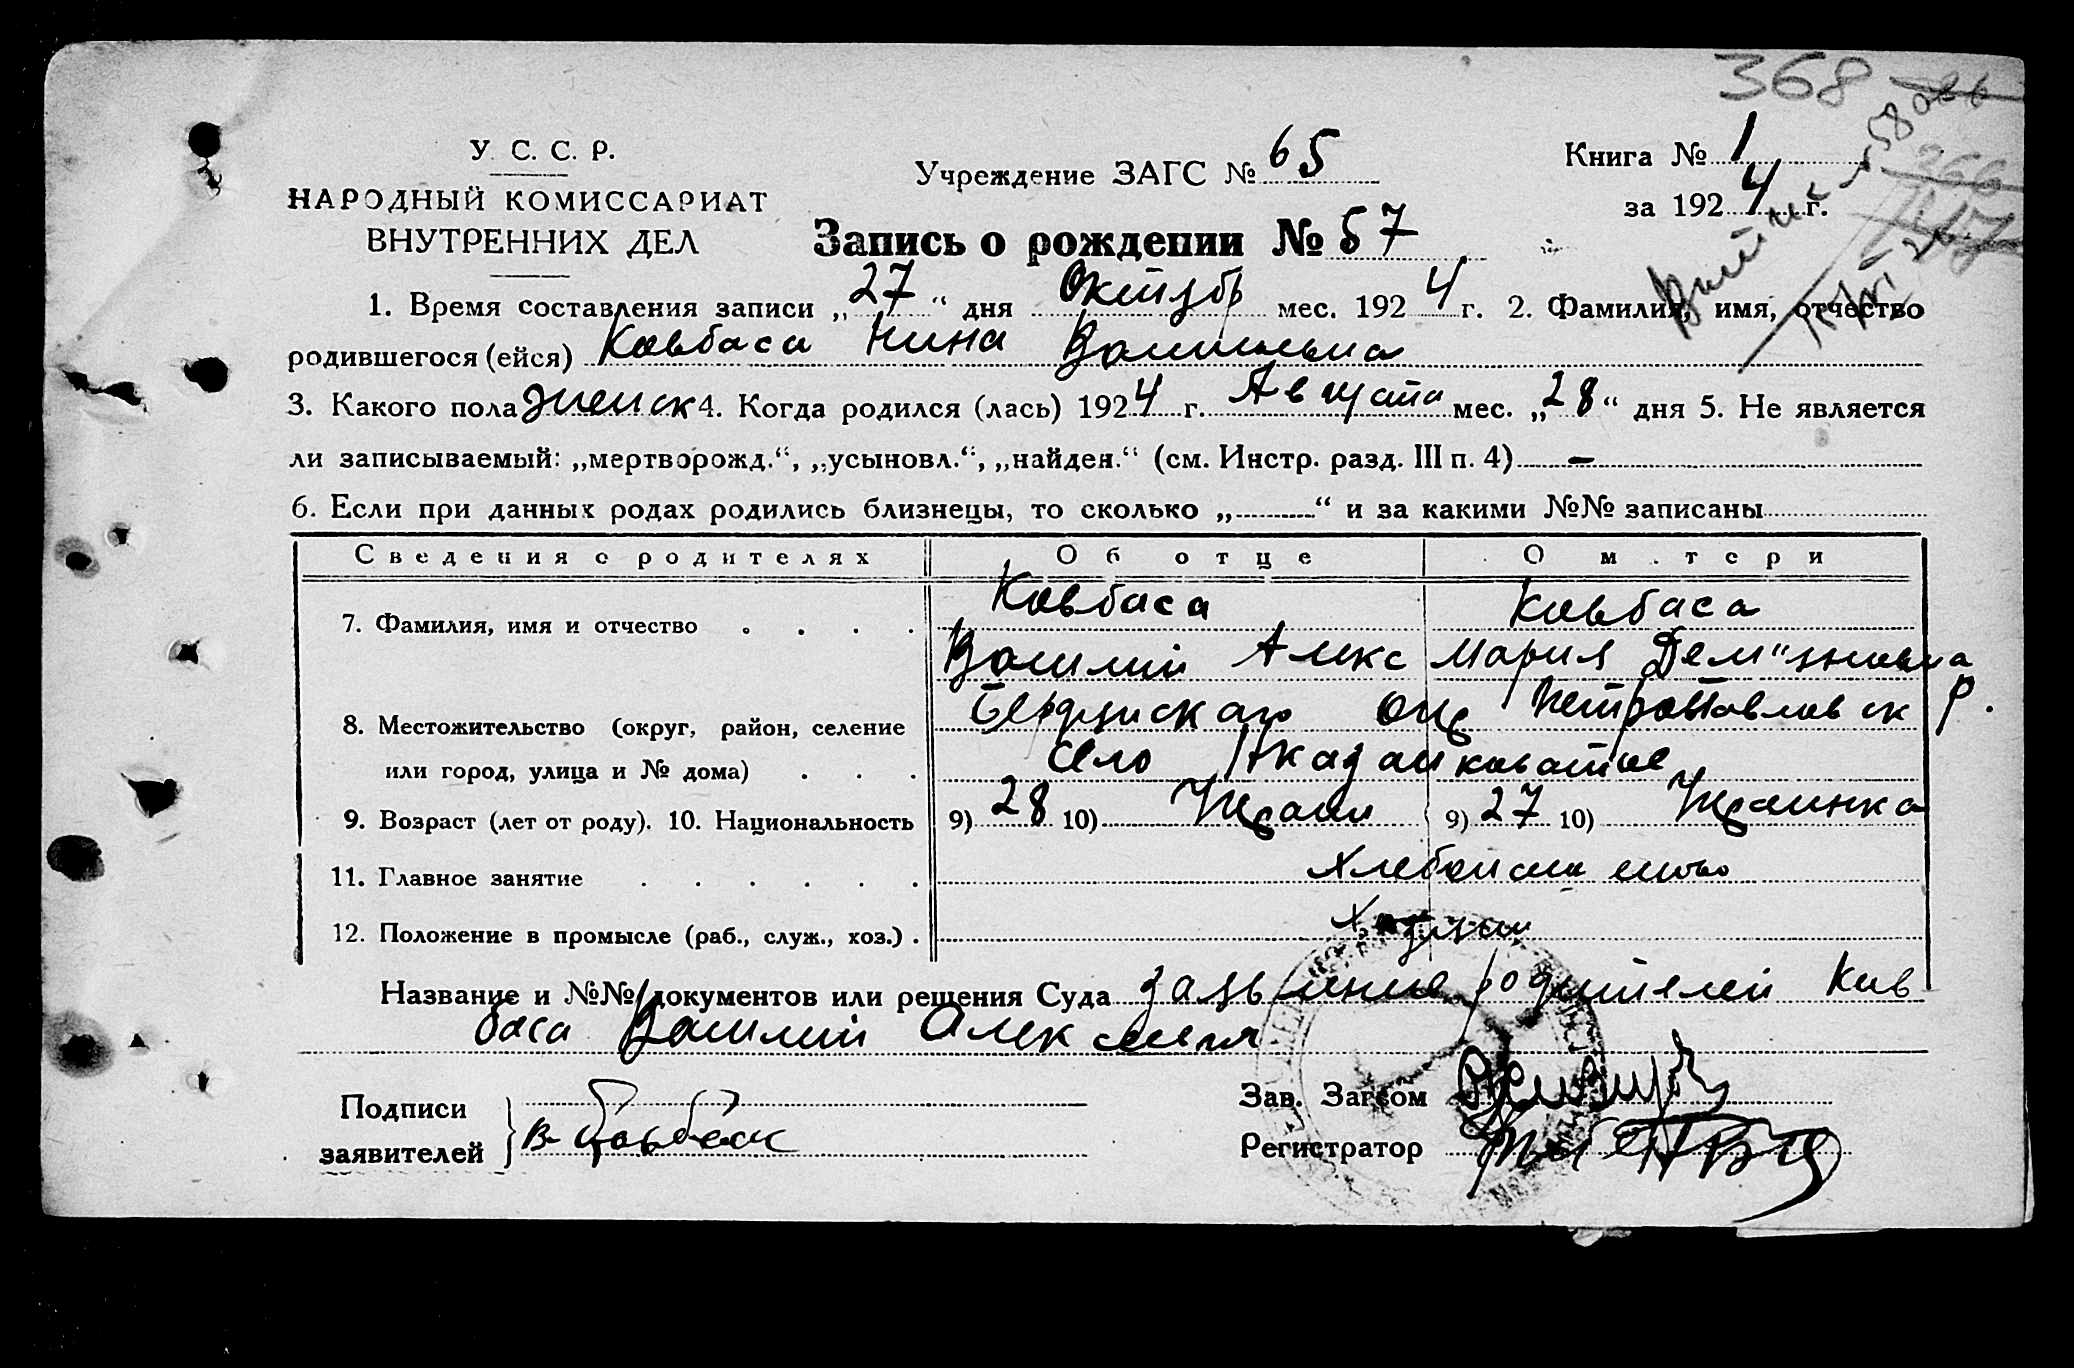 368
У. С. С. Р.
НАРОДНЫЙ КОМИССАРИАТ
ВНУТРЕННИХ ДЕЛ
Учреждение ЗАГС № 65
Книга № 1
за 1924 г.
Запись о рождении № 57
1. Время составления записи „27“ дня Октябр мес. 1924 г. 2. Фамилия, имя, отчество
родившегося (ейся) Ковбаса Нина Васильевна
3. Какого пола женск 4. Когда родился (лась) 1924 г. Августа мес. „28“ дня 5. Не является
ли записываемый: „мертворожд.“, „усыновл.“, „найден.“ (см. Инстр. разд. III п. 4) —
6. Если при данных родах родились близнецы, то сколько „ “ и за какими №№ записаны
Сведения о родителях Об отце О м тери
7. Фамилия, имя и отчество Ковбаса Ковбаса
Василий Алекс Мария Демьяновна
8. Местожительство (округ, район, селение Бердянскаго Петропавловск р.
или город, улица и № дома) село
9. Возраст (лет от роду). 10. Национальность 9) 28 10) Украин 9) 27 10) Украинка
11. Главное занятие
12. Положение в промысле (раб., служ., хоз.) . Хозяин
Название и №№ документов или решения Суда заявление родителей Ков
баса Василий
Подписи
заявителей
Зав. Загсом
Регистратор